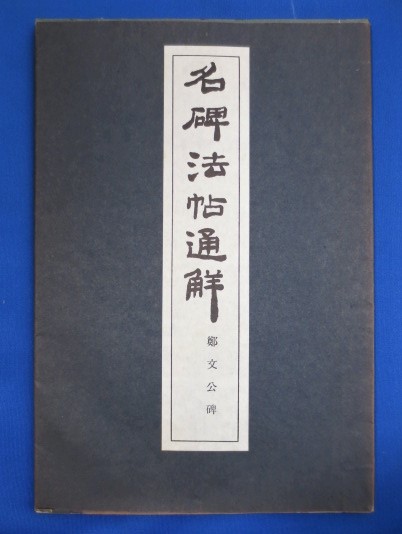 名碑法帖通觧
鄭文公碑